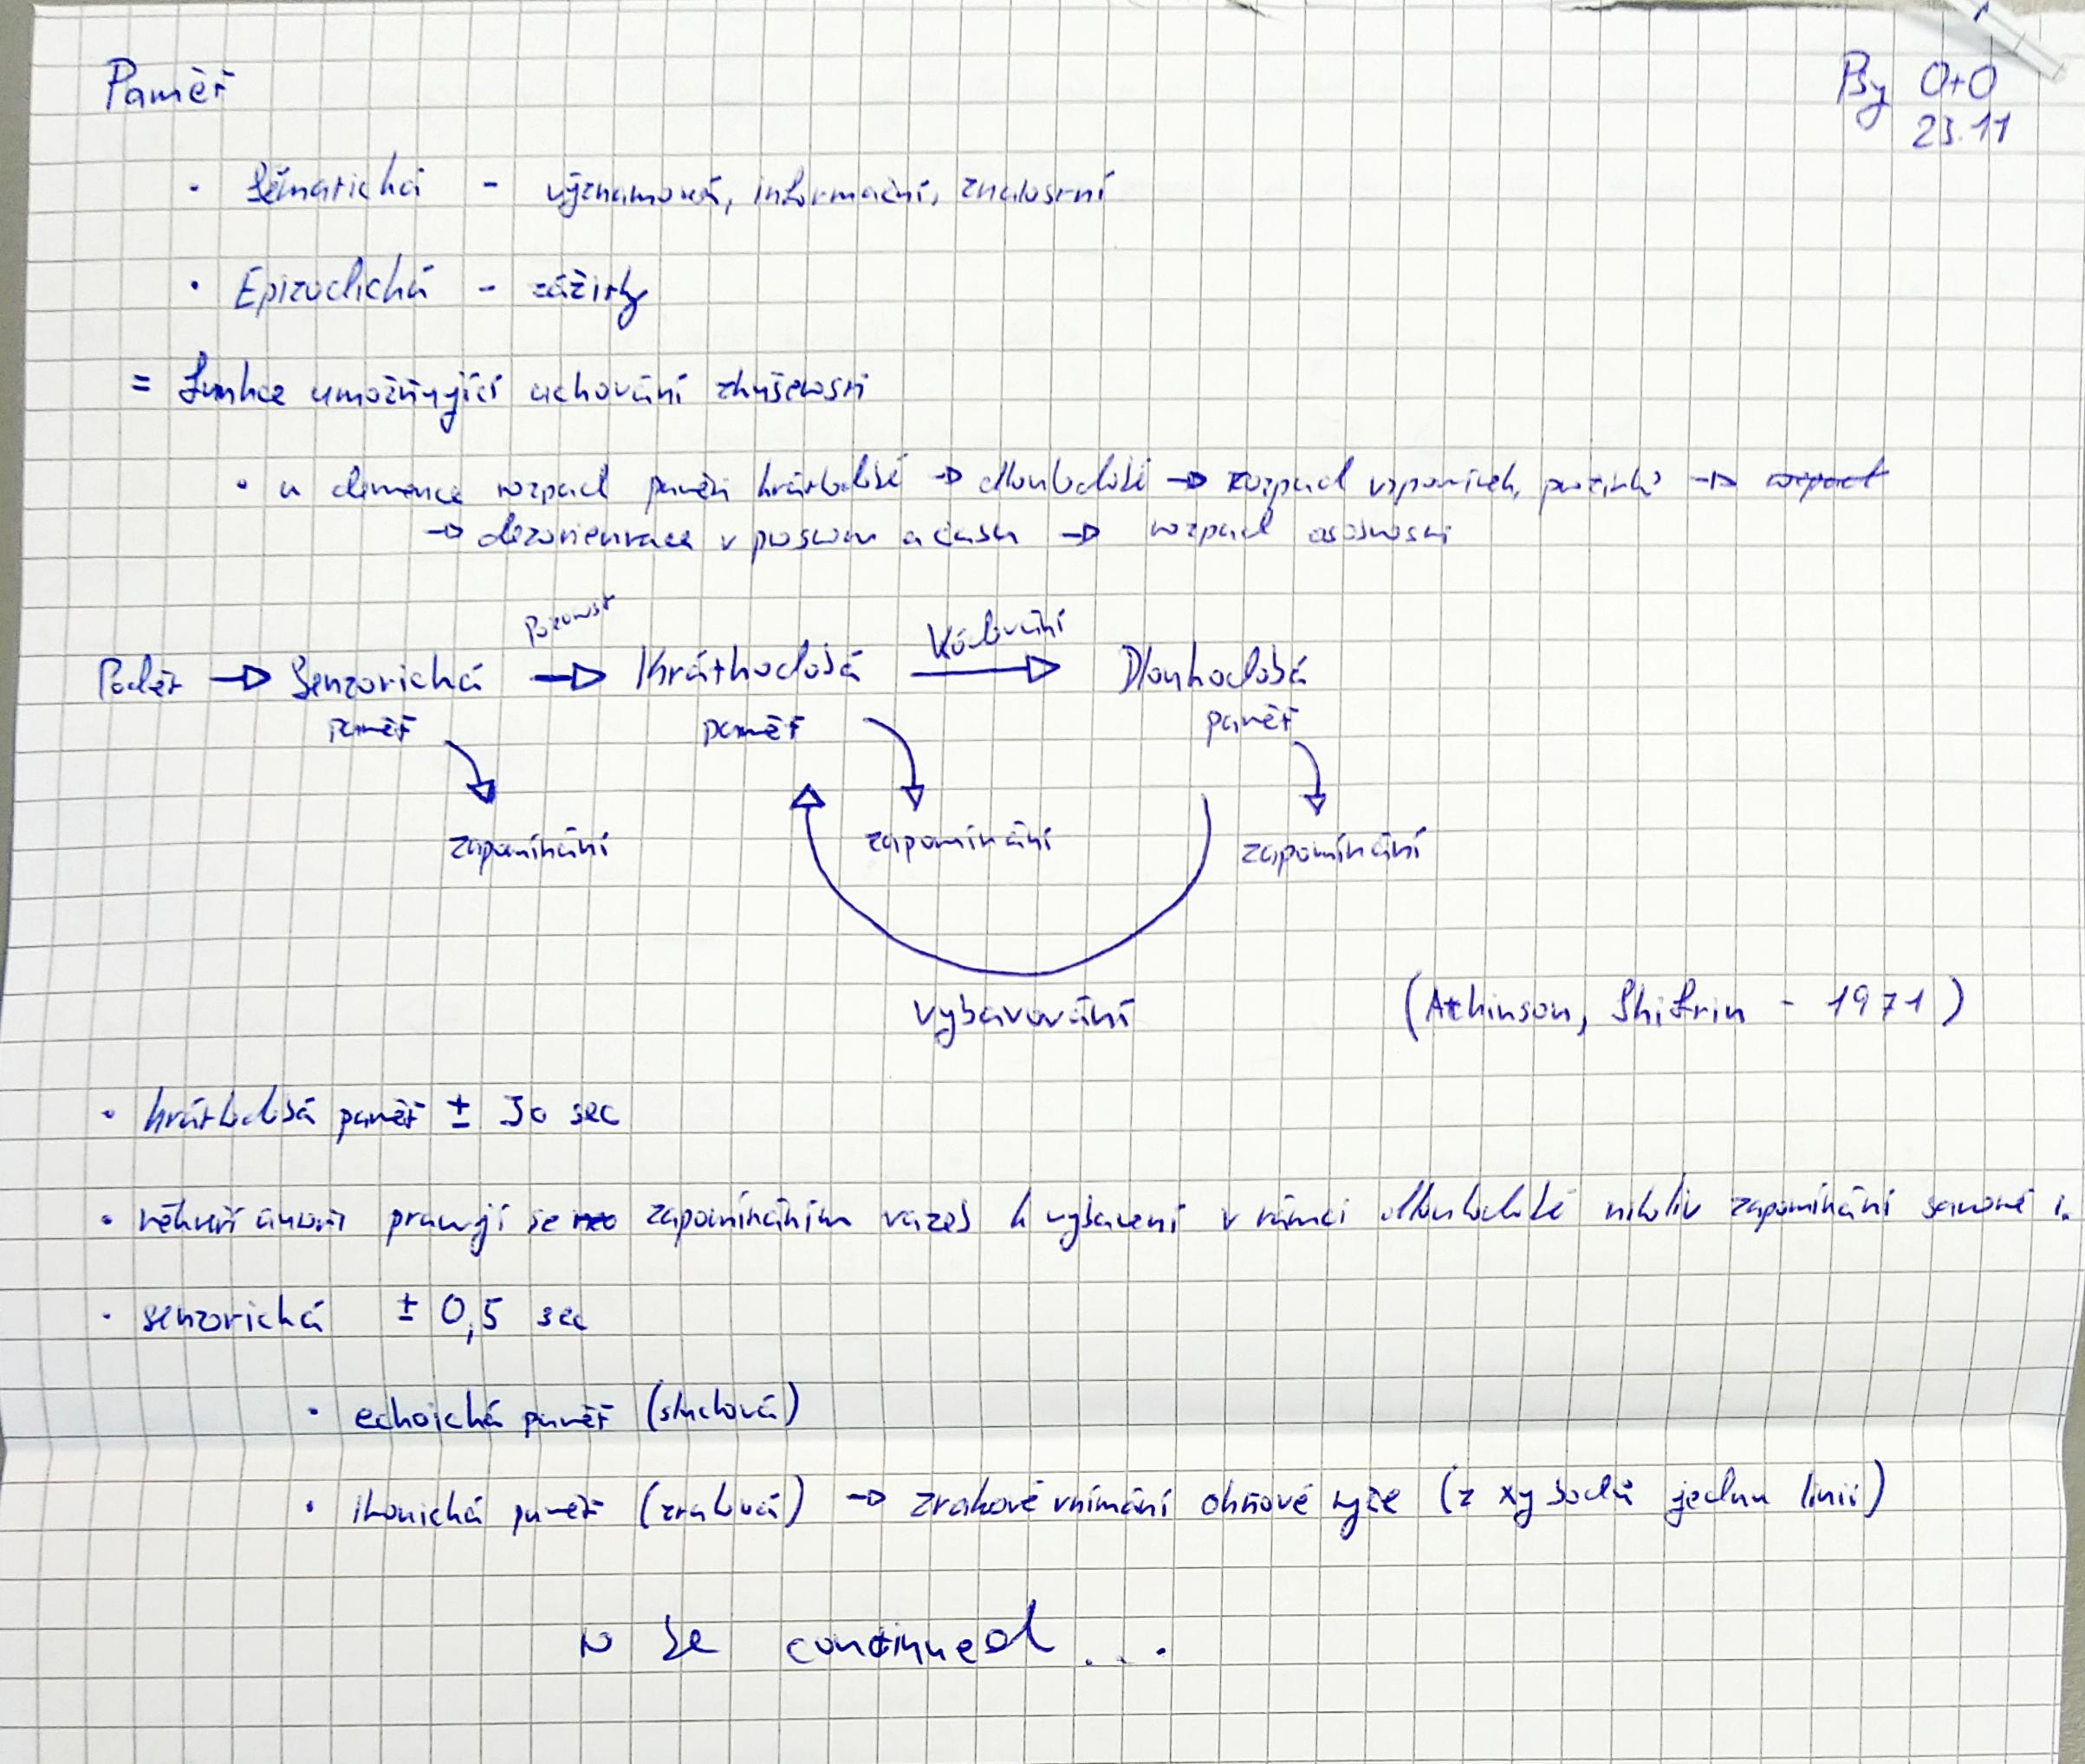 Paměť
By O+O
23.11
· Sématická - významová, informační, znalostní
· Epizodická - zážitky
= funkce umožňující uchování zkušenosti
· u demence rozpad paměti krátkodobé → dlouhodobé → rozpad vzpomínek, prožitků →
→ dezorientace v prostoru a času → rozpad osobnosti
Podět → Senzorická paměť → pozornost → Krátkodobá paměť → Kódování → Dlouhodobá paměť
zapomínání zapomínání zapomínání
vybavování
(Atkinson, Shifrin - 1971)
· krátkodobá paměť ± 30 sec
· někteří autoři pracují se zapomínáním vazeb k vybavení v rámci dlouhodobé nikoliv zapomínání samotné i.
· senzorická ± 0,5 sec
· echoická paměť (sluchová)
· ikonická paměť (zraková) → zrakové vnímání ohňové tyče (z xy bodů jednu linii)
to be continued...